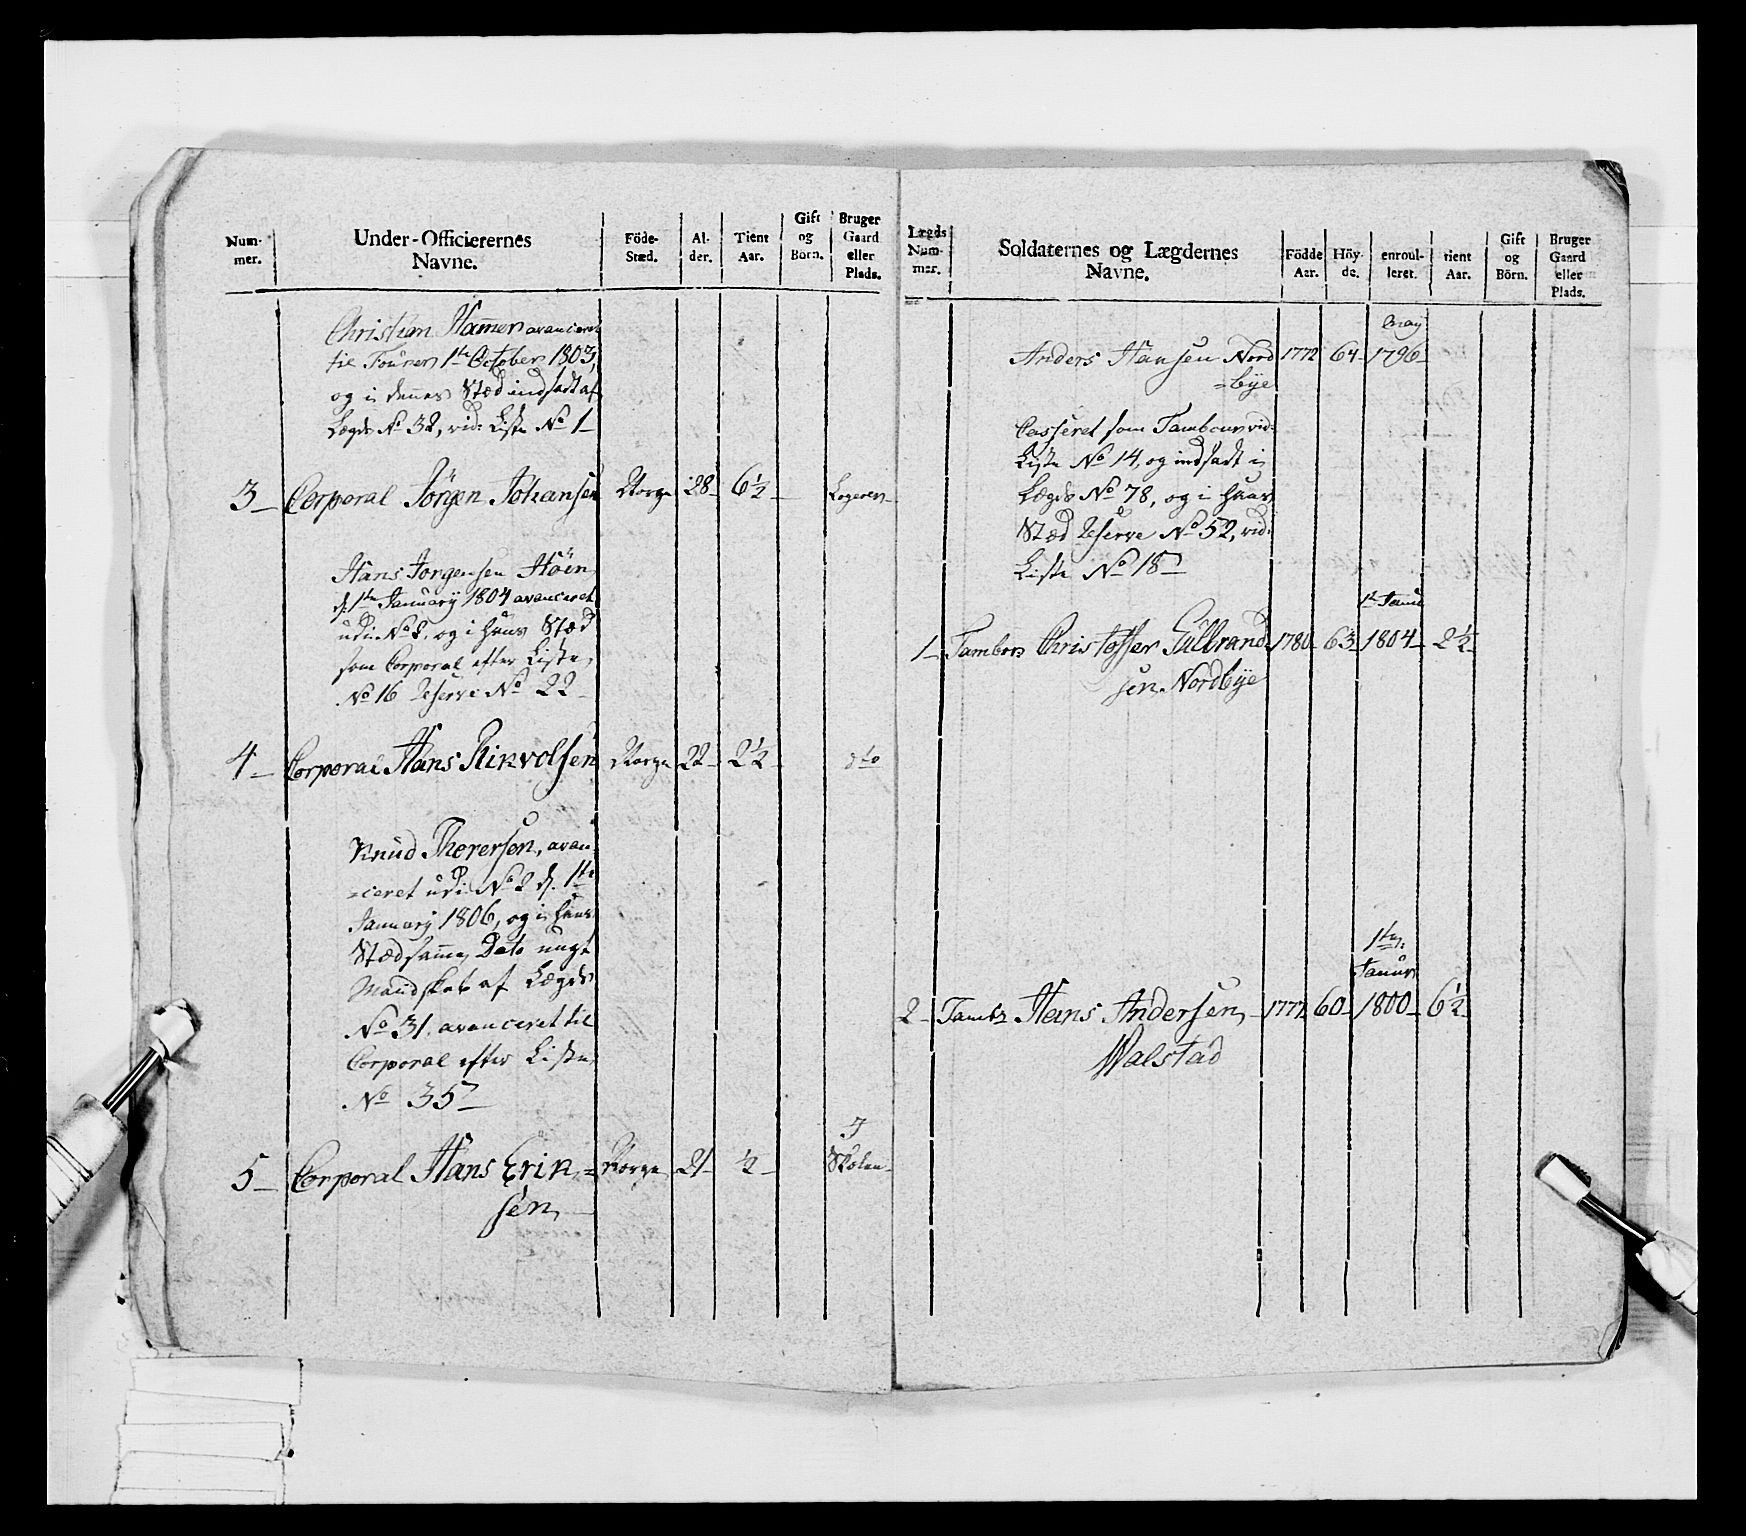 Num-
mer.
Under-Officierernes
Navne.
Föde-
Stæd.
Al-
der.
Tient
Aar.
Gift
og
Börn.
Bruger
Gaard
eller
Plads.
Christian Hammer avanceret
til Fourer 1te October 1803,
og i dennes Stæd indsadt af
Lægds No 32, vid: Liste No 1
3 Corporal Jörgen Johansen Norge 28 6½ Logeren
Hans Jorgensen Höen
d. 1te January 1804 avanceret
udi No 2, og i hans Stæd
som Corporal efter Liste
No 16 Reserve No 22
4 Corporal Hans Rinvolsen Norge 22 2½ dto
Knud Thorersen, avan
=ceret udi No 2 d. 1te
January 1806, og i hans
Stæd samme Dato ungt
Mandskab af Lægds
No 31. avanceret til
Corporal efter Liste
No 35
5 Corporal Hans Erik= Norge 21 ½ I Skolen
sen
Lægds
Num-
mer.
Soldaternes og Lægdernes
Navne.
Födde
Aar.
Höy-
de.
enroul-
leret.
tient
Aar.
Gift
og
Börn.
Bruger
Gaard
eller
Plads.
May
Anders Hansen Nord 1772 64 1796
=bye
Casseret som Tambour vid:
Liste No 14, og indsadt i
Lægds No 78, og i hans
Stæd Reserve No 52, vid:
Liste No 18
1te Janu
1 Tambor Christoffer Gulbrand 1780 63 1804 2½
sen Nordbye
1te
Januar
2 Tambr Hans Andersen 1777 60 1800 6½
Walstad